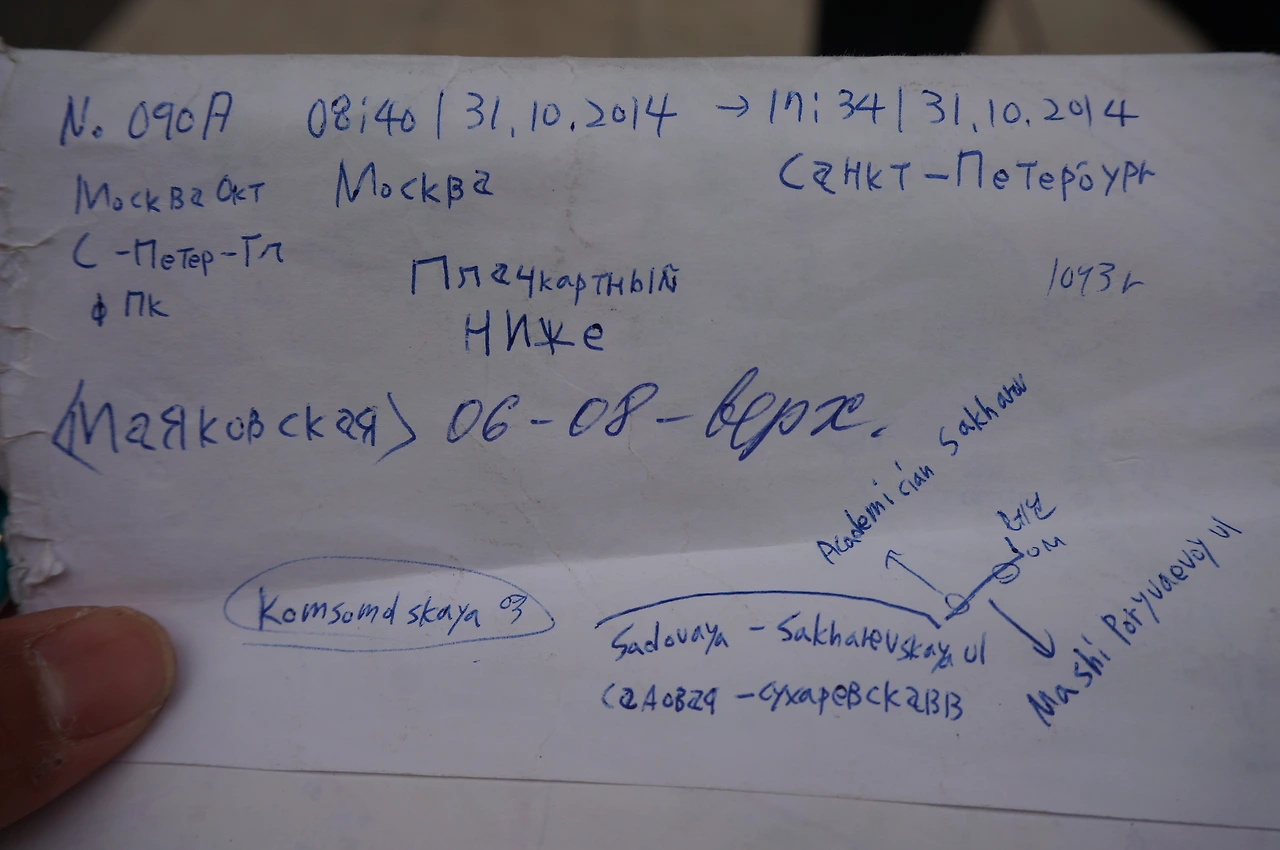 N. 090A 08:40 | 31.10.2014 → 17:34 | 31.10.2014
Москва Окт Москва Санкт-Петербург
С-Петер-Гл
ФПК Плачкартный 1043г
НИЖе
<Маяковская> 06-08-верх.
Academician Sakharov
Komsomolskaya
Sadovaya - Sakharevskaya ul
Садовая -сухаревскавв
Mashi Poryvaevoy ul